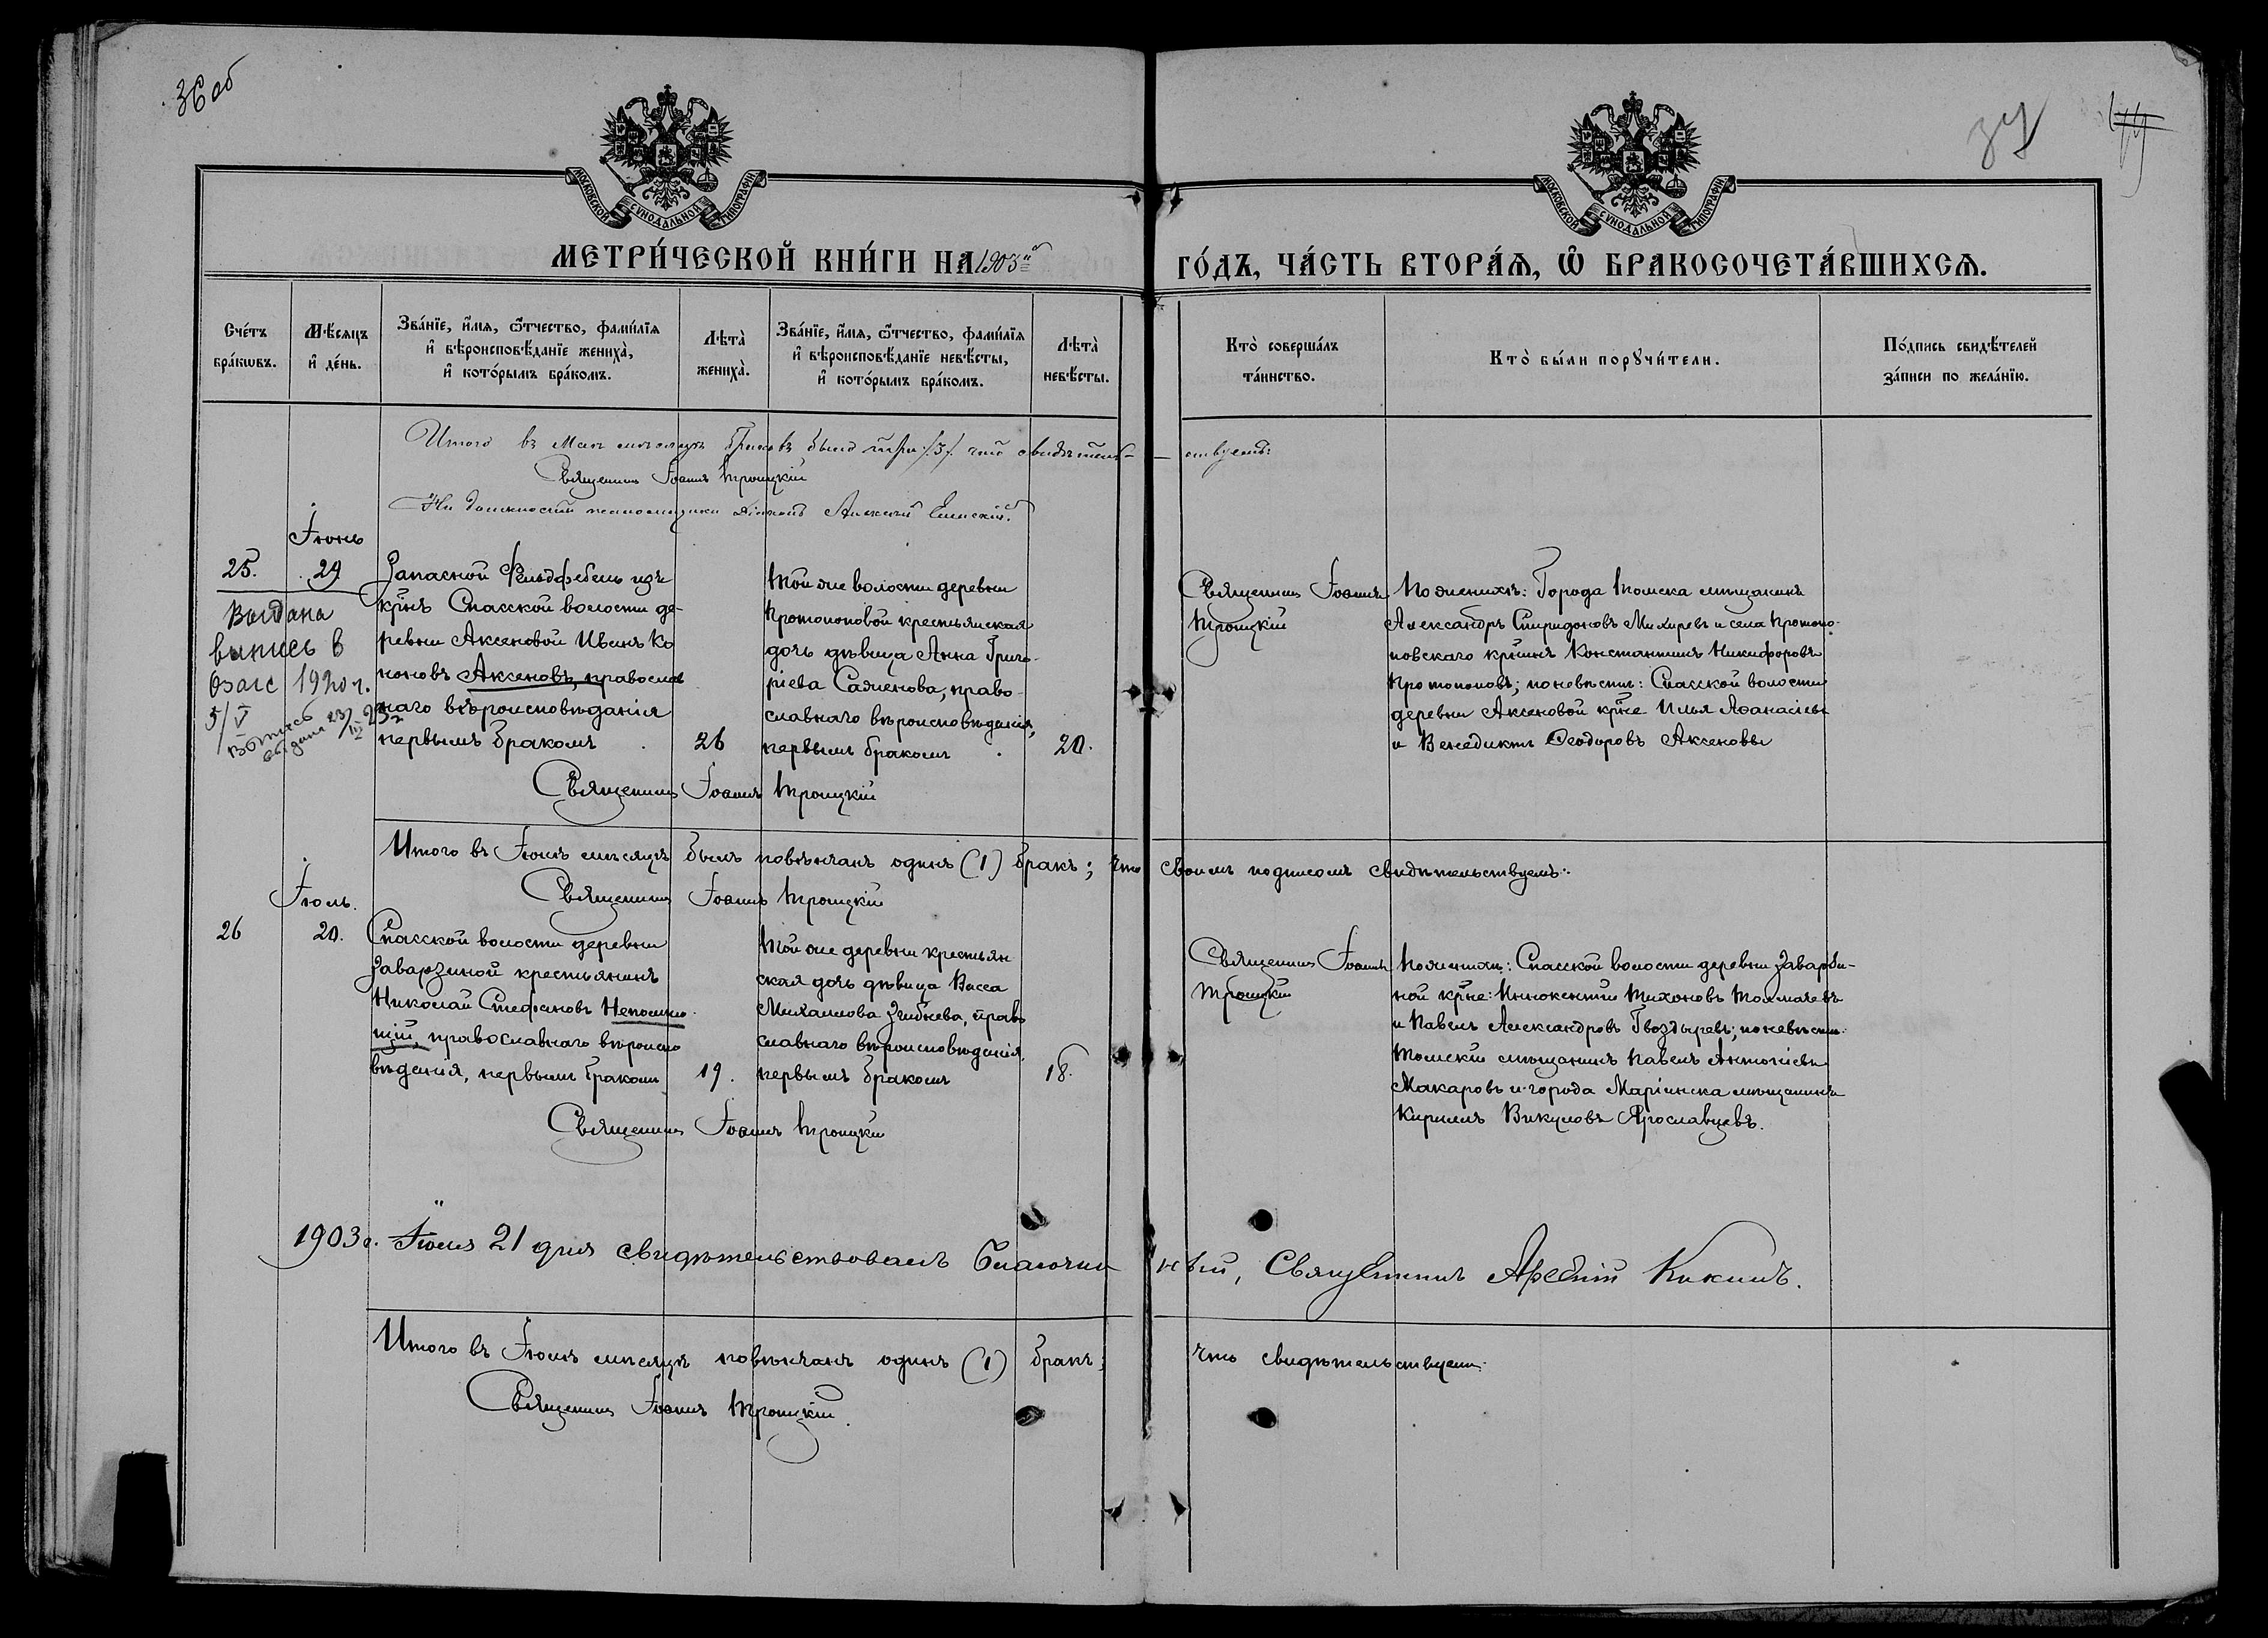 36 об
37
МОСКОВСКОЙ СѴНОДАЛЬНОЙ ТИПОГРАФІИ
МОСКОВСКОЙ СѴНОДАЛЬНОЙ ТИПОГРАФІИ
МЕТРИ́ЧЕСКОЙ КНИ́ГИ НА 1903й ГО́ДЪ, ЧА́СТЬ ВТОРА́Я, Ѽ БРАКОСОЧЕТА́ВШИХСЯ.
Сче́тъ
бра́кѡвъ.
Мѣ́сяцъ
и҆ де́нь.
Зва́нїе, и҆́мя, ѻ҆́тчество, фами́лїя
и҆ вѣроисповѣ́данїе жениха̀,
и҆ кото́рымъ бра́комъ.
Лѣта̀
жениха̀.
Зва́нїе, и҆́мя, ѻ҆́тчество, фами́лїя
и҆ вѣроисповѣ́данїе невѣ́сты,
и҆ кото́рымъ бра́комъ.
Лѣта̀
невѣ́сты.
Кто̀ соверша́лъ
та́инство.
Кто̀ бы́ли порꙋчи́тели.
По́дпись свидѣ́телей
за́писи по жела́нїю.
Итого въ Маѣ мѣсяцѣ браковъ было три /3/ что свидѣтель-
ствуетъ:
Священникъ Іоаннъ Троицкій
На должности псаломщика діаконъ Алексій
Іюнь
25.
29
Выдана
выпись в
Озагс 1920 г.
5/V
Выпись 23/III 25 г
выдана
Запасной Фельдфебель изъ
кр̃нъ Спасской волости де-
ревни Аксеновой Иванъ Ко
ноновъ Аксеновъ, православ
наго вѣроисповѣданія
первымъ бракомъ
26
Той же волости деревни
Протопоповой крестьянская
дочь дѣвица Анна Григо-
рьева Саженова, право-
славнаго вѣроисповѣданія,
первымъ бракомъ
20.
Священникъ Іоаннъ Троицкій
Священникъ Іоаннъ
Троицкій
По женихѣ: Города Томска мѣщанинъ
Александръ Спиридоновъ Михиревъ и села Протопо-
повскаго кр̃нинъ Константинъ Никифоровъ
Протопоповъ; по невѣстѣ: Спасской волости
деревни Аксеновой кр̃не Илья Аѳанасіевъ
и Венедиктъ Ѳеодоровъ Аксеновы
Итого въ Іюнѣ мѣсяцѣ былъ повѣнчанъ одинъ (1) бракъ; что своимъ подписомъ свидѣтельствуемъ:
Священникъ Іоаннъ Троицкій
Іюль.
26
20.
Спасской волости деревни
Заварзиной крестьянинъ
Николай Стефановъ Непомня
щій, православнаго вѣроиспо
вѣданія, первымъ бракомъ
19.
Той же деревни крестьян
ская дочь дѣвица Васса
Михаилова Згибнева, право
славнаго вѣроисповѣданія,
первымъ бракомъ
18.
Священникъ Іоаннъ Троицкій
Священникъ Іоаннъ
Троицкій
По женихѣ: Спасской волости деревни Заварзи-
ной кр̃не: Иннокентій Тихоновъ Толмачевъ
и Павелъ Александровъ Гвоздыревъ; по невѣстѣ:
Томскій мѣщанинъ Павелъ Антоніевъ
Макаровъ и города Маріинска мѣщанинъ
Кириллъ Викуловъ Ярославцевъ.
1903 г. Іюля 21 дня свидѣтельствовалъ Благочинный, Священникъ Арсеній Кикинъ.
Итого въ Іюлѣ мѣсяцѣ повѣнчанъ одинъ (1) бракъ; что свидѣтельствуемъ:
Священникъ Іоаннъ Троицкій.